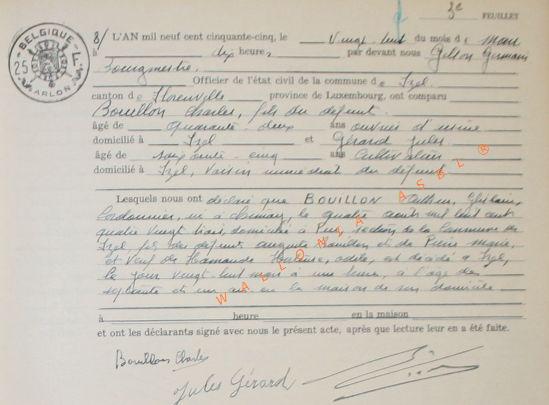 3e FEUILLET
BELGIQUE
25 F.
ARLON
8/ L'AN mil neuf cent cinquante-cinq, le vingt huit du mois de mars
à dix heures par devant nous Gillon Germain
bourgmestre
Officier de l'état civil de la commune de Izel
canton de Florenville province de Luxembourg, ont comparu
Bouillon Charles, fils du défunt
âgé de quarante-deux ans ouvrier d'usine
domicilié à Izel et Gérard Jules
âgé de soixante-cinq ans cultivateur
domicilié à Izel, voisin immédiat du défunt
Lesquels nous ont déclaré que BOUILLON Ghislain,
cordonnier, né à le quatre août mil huit cent
quatre vingt trois, domicilié à section de la Commune de
Izel, fils des défunts et de Marie,
et veuf de est décédé à Izel,
le jour vingt huit mars à une heure, à l'âge de
septante et un ans en la maison de son domicile
à heure en la maison
et ont les déclarants signé avec nous le présent acte, après que lecture leur en a été faite.
Bouillon Charles
Jules Gérard
WALLONIA ASBL ®